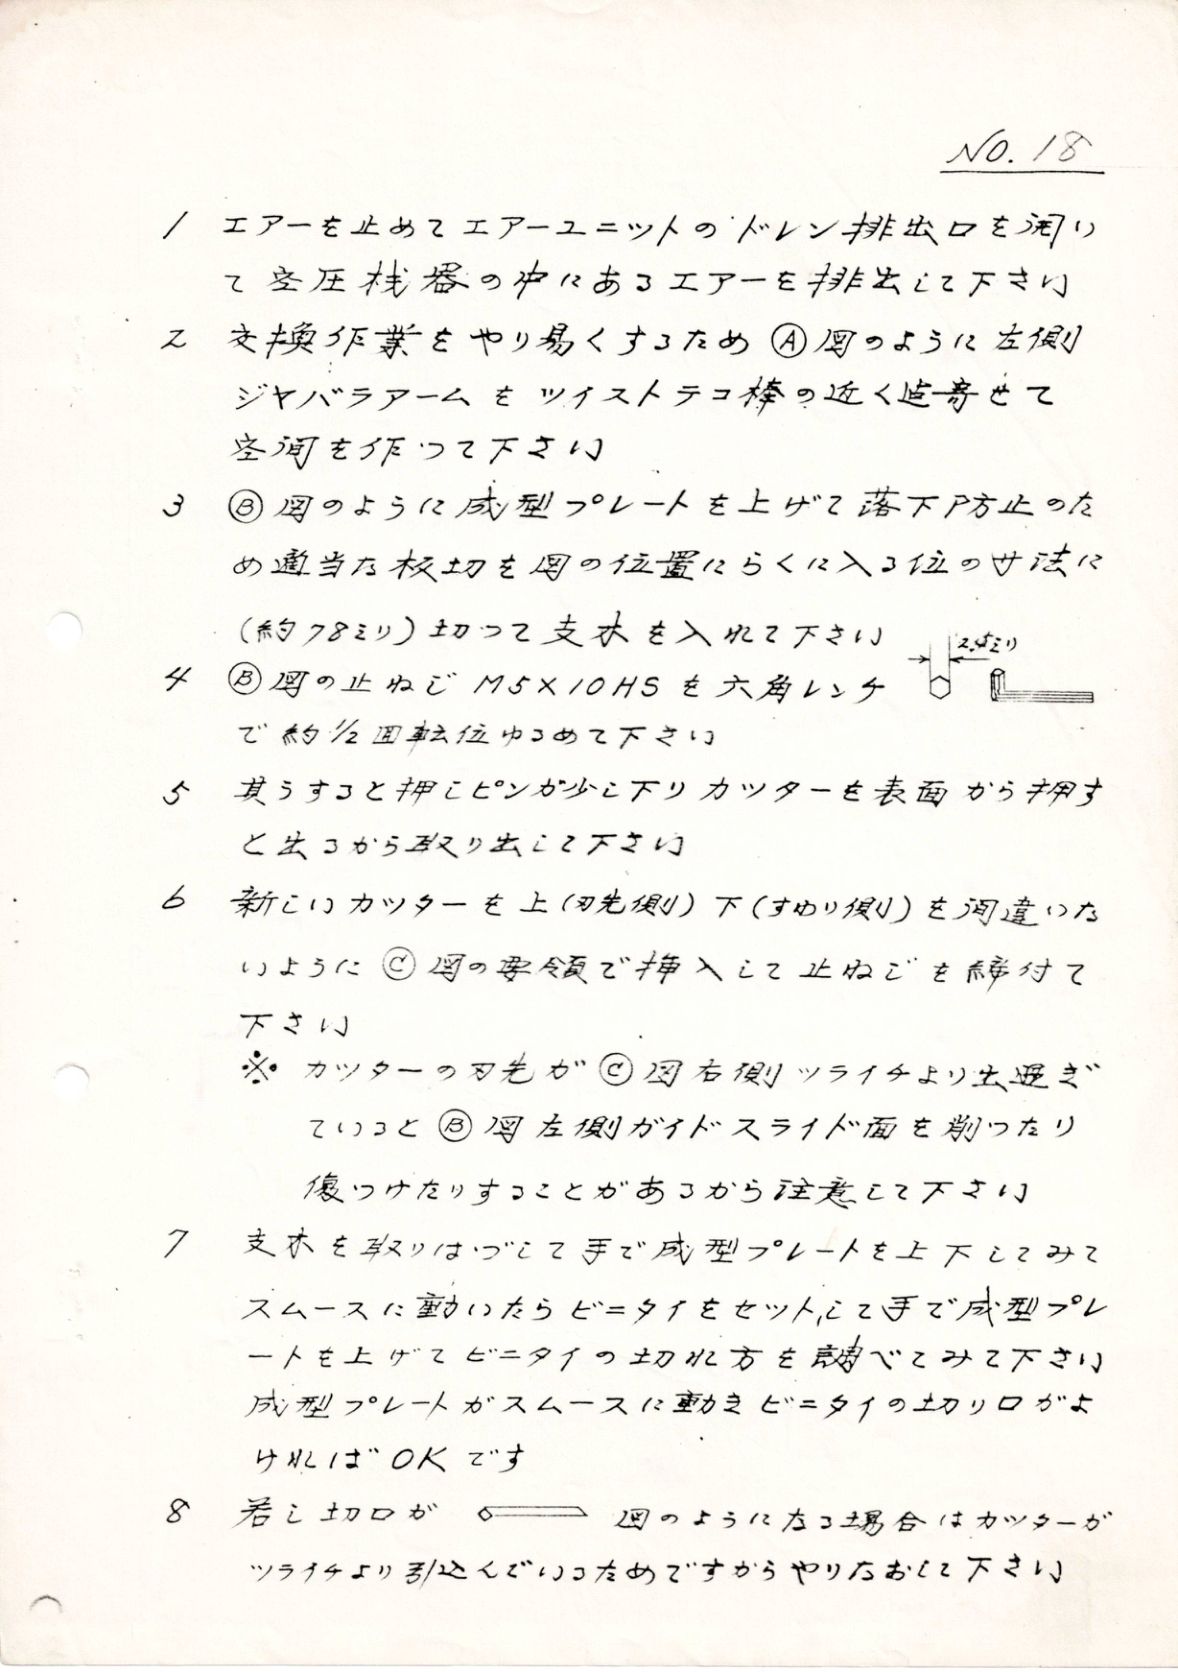 NO. 18
1 エアーを止めてエアーユニットのドレン排出口を開い
て空圧機器の中にあるエアーを排出して下さい
2 交換作業をやり易くするため Ⓐ図のように左側
ジヤバラアームをツイストテコ棒の近く迄寄せて
空間を作つて下さい
3 Ⓑ図のように成型プレートを上げて落下防止のた
め適当な板切を図の位置にらくに入る位の寸法に
(約78ミリ)切つて支木を入れて下さい
2.5ミリ
4 Ⓑ図の止ねじ M5×10HSを六角レンチ
で約1/2回転位ゆるめて下さい
5 其うすると押しピンが少し下りカツターを表面から押す
と出るから取り出して下さい
6 新しいカツターを上(刃先側)下(すわり側)を間違いな
いように Ⓒ図の要領で挿入して止ねじを締付て
下さい
※ カツターの刃先が Ⓒ図右側ツライチより出過ぎ
ているとⒷ図左側ガイドスライド面を削つたり
傷つけたりすることがあるから注意して下さい
7 支木を取りはづして手で成型プレートを上下してみて
スムースに動いたらビニタイをセットして手で成型プレ
ートを上げてビニタイの切れ方を調べてみて下さい
成型プレートがスムースに動きビニタイの切り口がよ
ければOKです
8 若し切口が 図のようになる場合はカツターが
ツライチより引込んでいるためですからやりなおして下さい